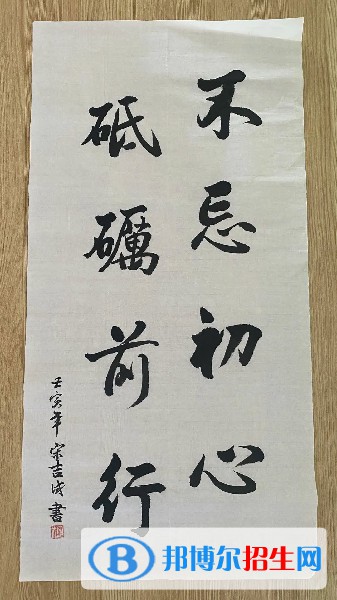 不忘初心
砥礪前行
壬寅年宋吉成書
B 邦博尔招生网